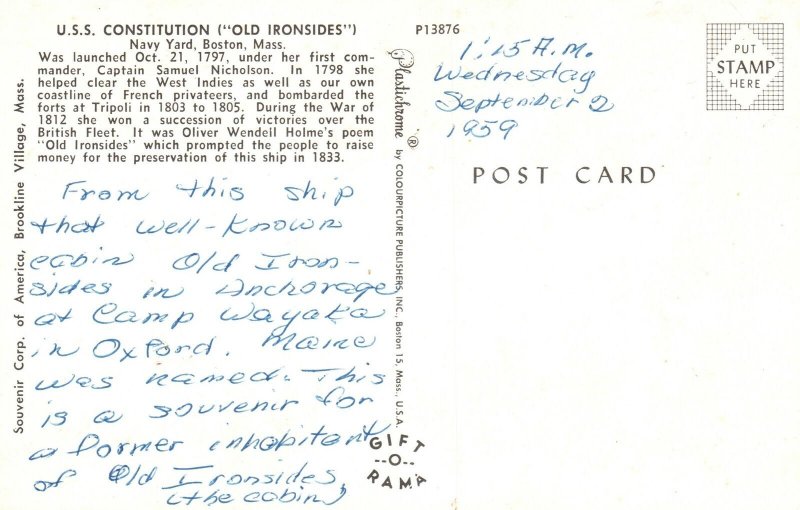 U.S.S. CONSTITUTION ("OLD IRONSIDES")
Navy Yard, Boston, Mass.
Was launched Oct. 21, 1797, under her first com-
mander, Captain Samuel Nicholson. In 1798 she
helped clear the West Indies as well as our own
coastline of French privateers, and bombarded the
forts at Tripoli in 1803 to 1805. During the War of
1812 she won a succession of victories over the
British Fleet. It was Oliver Wendell Holme's poem
"Old Ironsides" which prompted the people to raise
money for the preservation of this ship in 1833.
From this ship
that well-known
cabin Old Iron-
sides in Anchorage
at Camp Wayaka
in Oxford, Maine
was named. This
is a souvenir for
a former inhabitant
of Old Ironsides
(the cabin)
Souvenir Corp. of America, Brookline Village, Mass.
Plastichrome ® by COLOURPICTURE PUBLISHERS, INC., Boston 15, Mass., U.S.A.
GIFT
--O--
RAMA
P13876
1:15 A.M.
Wednesday
September 2
1959
POST CARD
PUT
STAMP
HERE